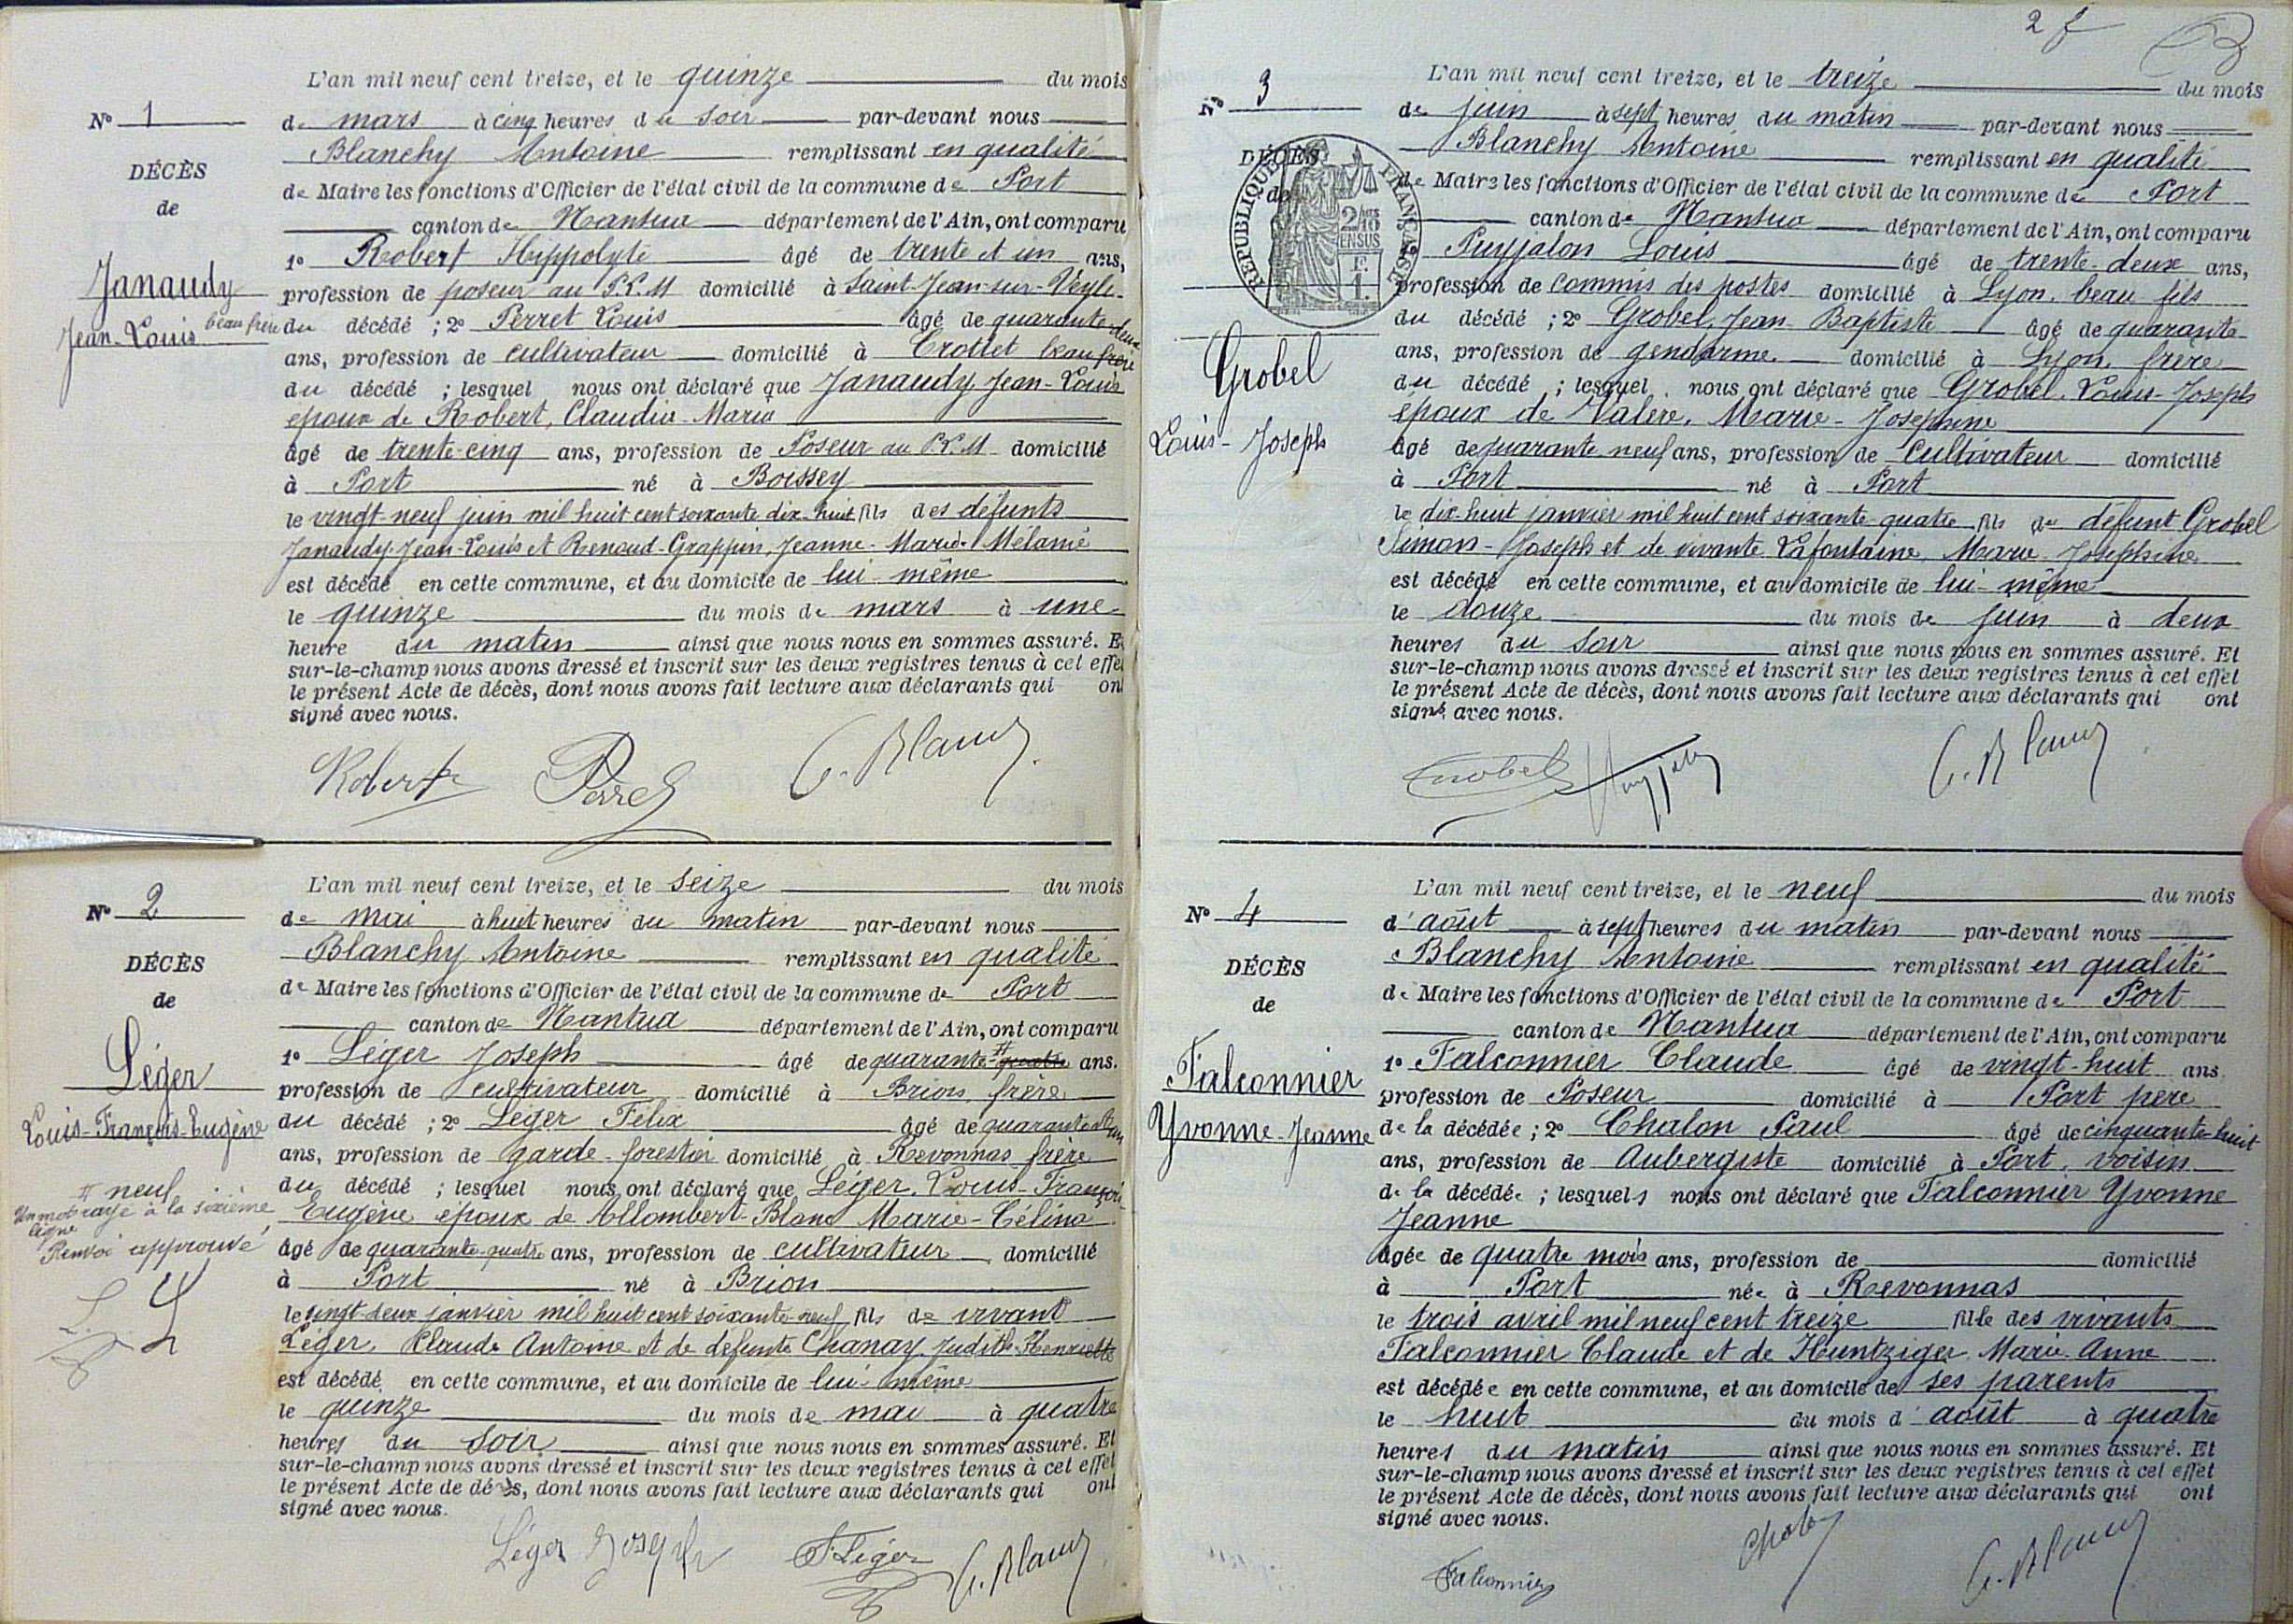 L'an mil neuf cent treize, et le quinze du mois
N° 1
de mars à cinq heures du soir par-devant nous
Blanchy Antoine remplissant en qualité
DÉCÈS
de Maire les fonctions d'Officier de l'état civil de la commune de Port
de
canton de Nantua département de l'Ain, ont comparu
1° Robert Hippolyte âgé de trente et un ans,
Janaudy
profession de poseur au P.L.M domicilié à Saint-Jean-sur-Veyle
Jean-Louis
beau frère du décédé ; 2° Perret Louis âgé de quarante-deux
ans, profession de cultivateur domicilié à Crottet beau frère
du décédé ; lesquel nous ont déclaré que Janaudy Jean-Louis
époux de Robert, Claudia-Maria
âgé de trente-cinq ans, profession de Poseur au P.L.M domicilié
à Port né à Boissey
le vingt-neuf juin mil huit cent soixante dix-huit fils des défunts
Janaudy Jean-Louis et Renoud-Grappin, Jeanne-Marie-Mélanie
est décédé en cette commune, et au domicile de lui-même
le quinze du mois de mars à une
heure du matin ainsi que nous nous en sommes assuré. Et
sur-le-champ nous avons dressé et inscrit sur les deux registres tenus à cet effet
le présent Acte de décès, dont nous avons fait lecture aux déclarants qui ont
signé avec nous.
Robert Perret A. Blanchy
L'an mil neuf cent treize, et le seize du mois
N° 2
de mai à huit heures du matin par-devant nous
Blanchy Antoine remplissant en qualité
DÉCÈS
de Maire les fonctions d'Officier de l'état civil de la commune de Port
de
canton de Nantua département de l'Ain, ont comparu
1° Léger Joseph âgé de quarante-quatre ans.
Léger
profession de cultivateur domicilié à Brion, frère
Louis-François-Eugène
du décédé ; 2° Léger Félix âgé de quarante et un
ans, profession de garde-forestier domicilié à Revonnas frère
du décédé ; lesquel nous ont déclaré que Léger, Louis-François
neuf
Un mot rayé à la sixième
ligne
Renvoi approuvé
Eugène époux de Allombert-Blanc Marie-Célina
âgé de quarante-quatre ans, profession de cultivateur domicilié
à Port né à Brion
le vingt-deux janvier mil huit cent soixante-neuf fils de vivant
Léger, Claude Antoine et de défunte Chanay Judith-Henriette
est décédé en cette commune, et au domicile de lui-même
le quinze du mois de mai à quatre
heures du soir ainsi que nous nous en sommes assuré. Et
sur-le-champ nous avons dressé et inscrit sur les deux registres tenus à cet effet
le présent Acte de décès, dont nous avons fait lecture aux déclarants qui ont
signé avec nous.
Léger Joseph F. Léger A. Blanchy
2 f
L'an mil neuf cent treize, et le treize du mois
N° 3
de juin à sept heures du matin par-devant nous
Blanchy Antoine remplissant en qualité
DÉCÈS
de Maire les fonctions d'Officier de l'état civil de la commune de Port
de
RÉPUBLIQUE FRANÇAISE
2/10 EN SUS
F. 1.
canton de Nantua département de l'Ain, ont comparu
1° Puyjalon Louis âgé de trente-deux ans,
profession de commis des postes domicilié à Lyon, beau fils
Grobel
Louis-Joseph
du décédé ; 2° Grobel, Jean-Baptiste âgé de quarante
ans, profession de gendarme domicilié à Lyon, frère
du décédé ; lesquel nous ont déclaré que Grobel, Louis-Joseph
époux de Valère, Marie-Josephine
âgé de quarante-neuf ans, profession de cultivateur domicilié
à Port né à Port
le dix-huit janvier mil huit cent soixante-quatre fils de défunt Grobel
Simon-Joseph et de vivante Lafontaine, Marie-Josephine
est décédé en cette commune, et au domicile de lui-même
le douze du mois de juin à deux
heures du soir ainsi que nous nous en sommes assuré. Et
sur-le-champ nous avons dressé et inscrit sur les deux registres tenus à cet effet
le présent Acte de décès, dont nous avons fait lecture aux déclarants qui ont
signé avec nous.
Grobel Puyjalon A. Blanchy
L'an mil neuf cent treize, et le neuf du mois
N° 4
d'août à sept heures du matin par-devant nous
Blanchy Antoine remplissant en qualité
DÉCÈS
de Maire les fonctions d'Officier de l'état civil de la commune de Port
de
canton de Nantua département de l'Ain, ont comparu
1° Falconnier Claude âgé de vingt-huit ans
Falconnier
profession de Poseur domicilié à Port père
Yvonne-Jeanne
de la décédée ; 2° Chalon Paul âgé de cinquante-huit
ans, profession de Aubergiste domicilié à Port, voisin
de la décédée ; lesquels nous ont déclaré que Falconnier Yvonne
Jeanne
âgée de quatre mois ans, profession de domicilié
à Port née à Revonnas
le trois avril mil neuf cent treize fille des vivants
Falconnier Claude et de Huntziger Marie Anne
est décédée en cette commune, et au domicile de ses parents
le huit du mois d'août à quatre
heures du matin ainsi que nous nous en sommes assuré. Et
sur-le-champ nous avons dressé et inscrit sur les deux registres tenus à cet effet
le présent Acte de décès, dont nous avons fait lecture aux déclarants qui ont
signé avec nous.
Falconnier Chalon A. Blanchy